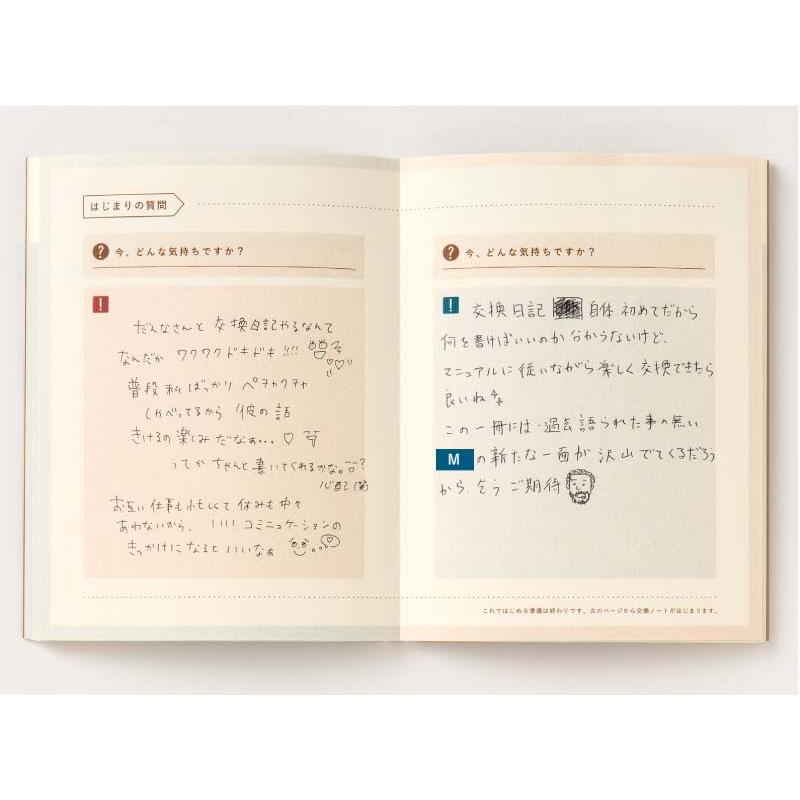 はじまりの質問
? 今、どんな気持ちですか？
!
だんなさんと 交換日記やるなんて
なんだか ワクワクドキドキ!!!
普段 私 ばっかり ペチャクチャ
しゃべってるから 彼の 話
きけるの楽しみ だなぁ... ♡
ってか ちゃんと 書いてくれるかな。?
心配 (笑)
お互い 仕事も忙しくて 休みも 中々
あわないから、 いい コミニュケーションの
きっかけになると いいなぁ
? 今、どんな気持ちですか？
!
交換日記 自体 初めてだから
何を書けばいいのか 分からないけど、
マニュアルに 従いながら 楽しく 交換できたら
良いね
この一冊には 過去 語られた事の無い
M の新たな一面が 沢山 でてくるだろう
から、そう ご期待
これではじめる準備は終わりです。次のページから交換ノートがはじまります。